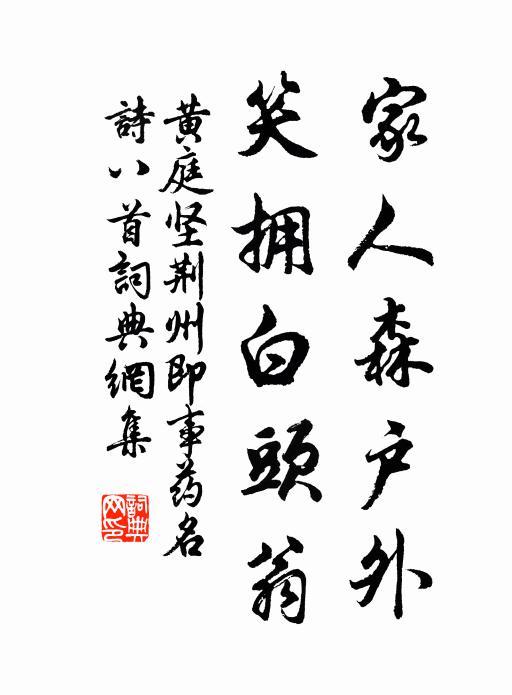 家人森户外
笑拥白頭翁
黄庭坚荆州即事药名
詩八首詞典網集
詞典网印